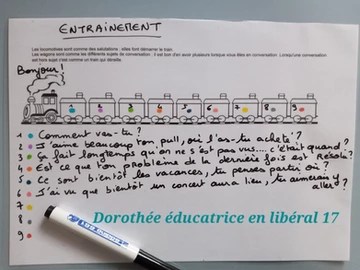 ENTRAINEMENT
Les locomotives sont comme des salutations : elles font démarrer le train.
Les wagons sont comme les différents sujets de conversation : il est bon d'en avoir plusieurs lorsque vous êtes en conversation. Lorsqu'une conversation
est hors sujet c'est comme un train qui déraille.
Bonjour !
1 2 3 4 5 6 7 8 9
1 Comment vas-tu ?
2 J'aime beaucoup ton pull, où l'as-tu acheté ?
3 Ça fait longtemps qu'on ne s'est pas vus.... c'était quand ?
4 Est ce que ton problème de la dernière fois est résolu ?
5 Ce sont bientôt les vacances, tu penses partir où ?
6 J'ai vu que bientôt un concert aura lieu, tu aimerais y
aller ?
7
8
9
Dorothée éducatrice en libéral 17